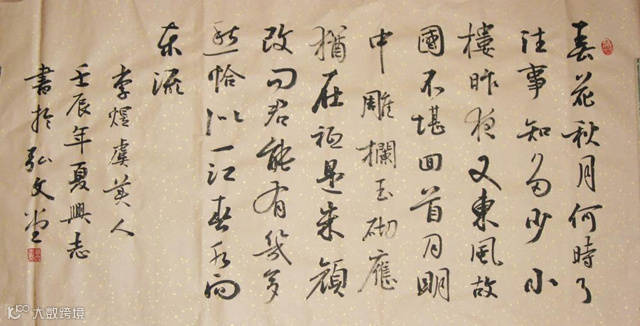 春花秋月何時了
往事知多少小
樓昨夜又東風故
國不堪回首月明
中雕欄玉砌應
猶在祇是朱顏
改問君能有幾多
愁恰似一江春水向
东流
李煜虞美人
壬辰年夏興志
書於弘文堂
大数跨境